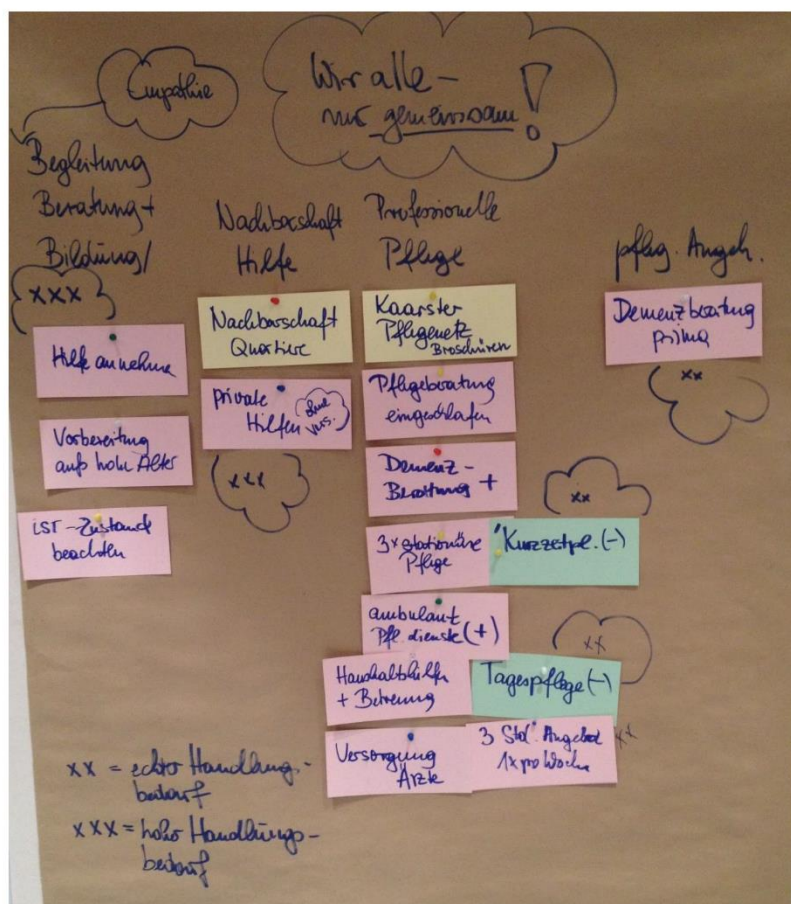 Empathie
Wir alle –
nur gemeinsam!
Begleitung
Beratung +
Bildung/
xxx
Hilfe annehme
Vorbereitung
aufs hohe Alter
iST-Zustand
beachten
Nachbarschaft
Hilfe
Nachbarschaft
Quartier
private
Hilfen
ohne
Vers.
xxx
Professionelle
Pflege
Kaarster
Pflegenetz
Broschüren
Pflegeberatung
eingeschlafen
Demenz-
Beratung +
3x stationäre
Pflege
Kurzzeitpf. (-)
xx
ambulant
Pfl. dienste (+)
Haushaltshilfen
+ Betreuung
Tagespflege (-)
xx
Versorgung
Ärzte
3 Std. Angebot
1x pro Woche
xx
pfleg. Angeh.
Demenzberatung
prima
xx
xx = echter Handlung.-
bedarf
xxx = hoher Handlungs-
bedarf